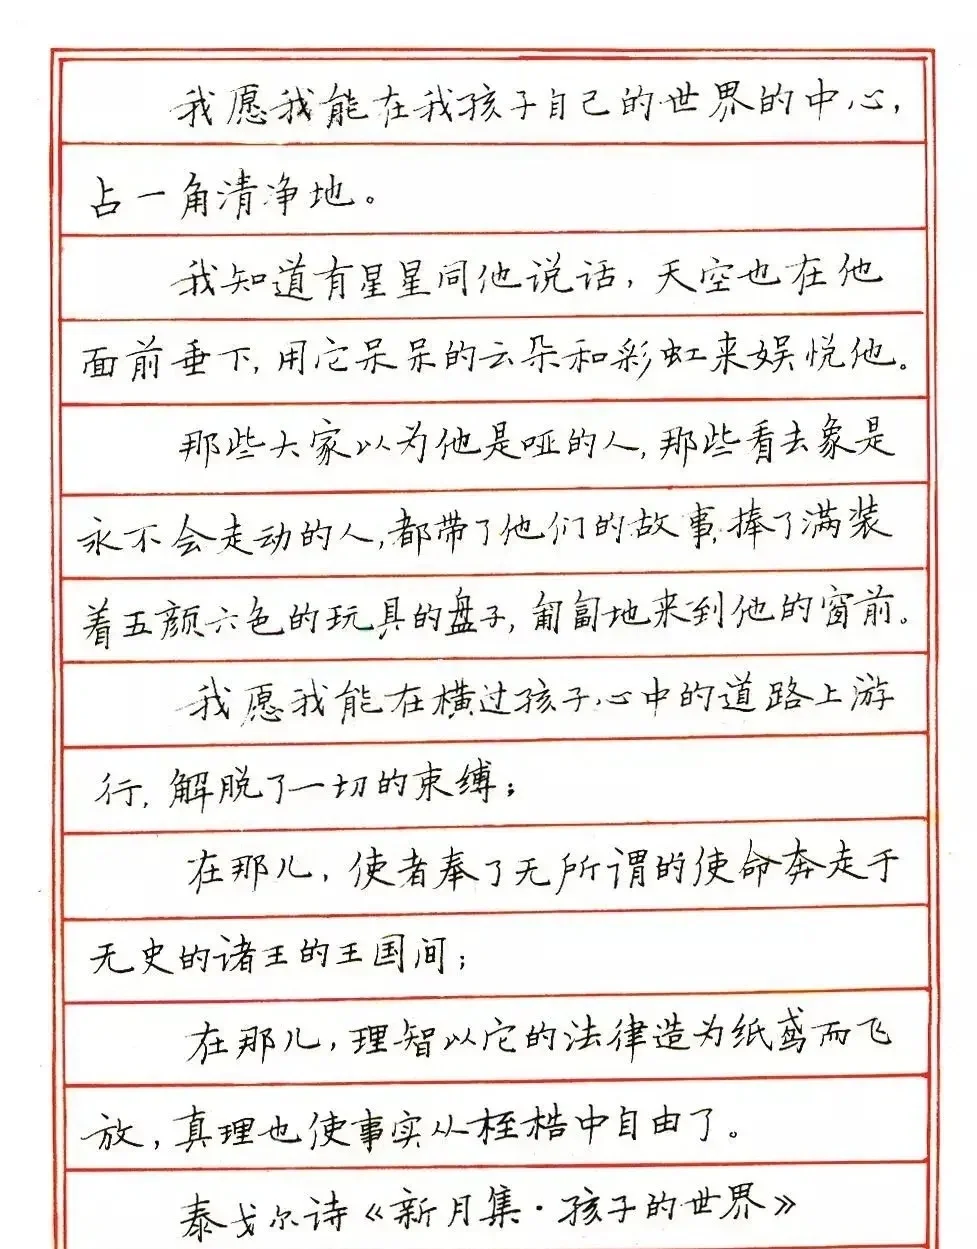 我愿我能在我孩子自己的世界的中心,
占一角清净地。
我知道有星星同他说话,天空也在他
面前垂下,用它呆呆的云朵和彩虹来娱悦他。
那些大家以为他是哑的人,那些看去象是
永不会走动的人,都带了他们的故事,捧了满装
着五颜六色的玩具的盘子,匍匐地来到他的窗前。
我愿我能在横过孩子心中的道路上游
行,解脱了一切的束缚;
在那儿,使者奉了无所谓的使命奔走于
无史的诸王的王国间;
在那儿,理智以它的法律造为纸鸢而飞
放,真理也使事实从桎梏中自由了。
泰戈尔诗《新月集·孩子的世界》